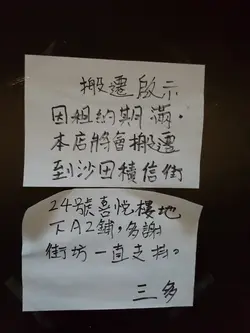 搬遷啟示
因租約期滿，
本店將會搬遷
到沙田積信街
24號喜悅樓地
下A2鋪，多謝
街坊一直支持。
三多